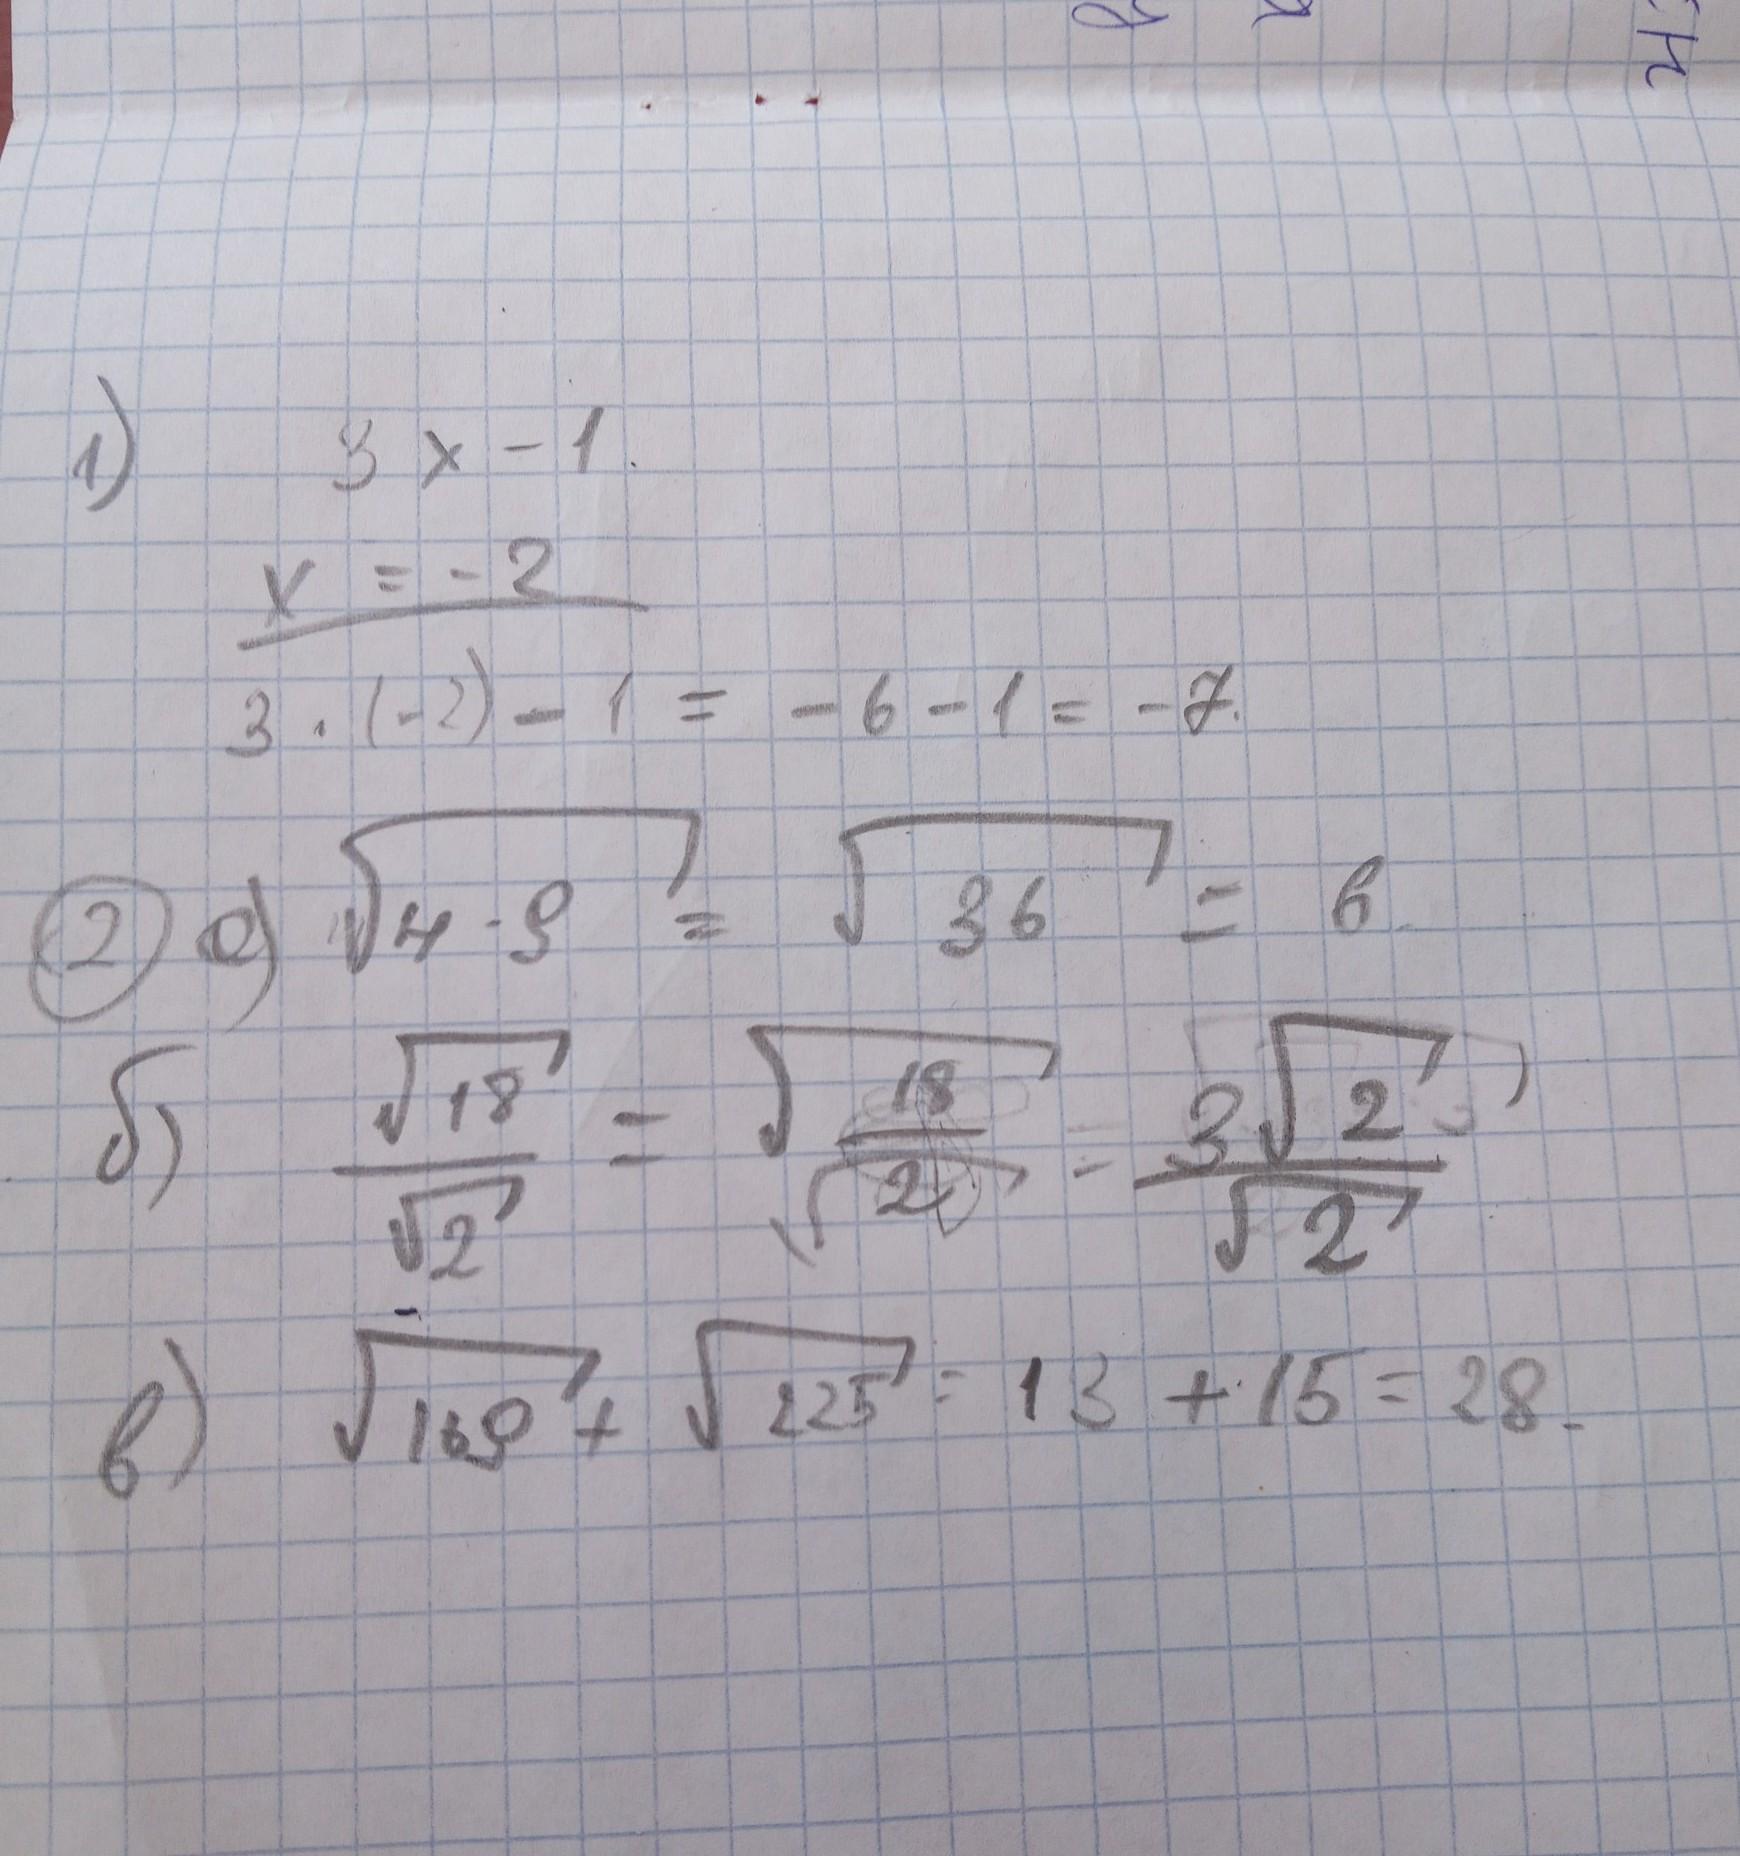 1) 3x - 1.
x = -2
3 · (-2) - 1 = -6 - 1 = -7.
2 а) √4·9 = √36 = 6.
б) √18/√2 = √18/2 = 3√2/√2
в) √169 + √225 = 13 + 15 = 28.